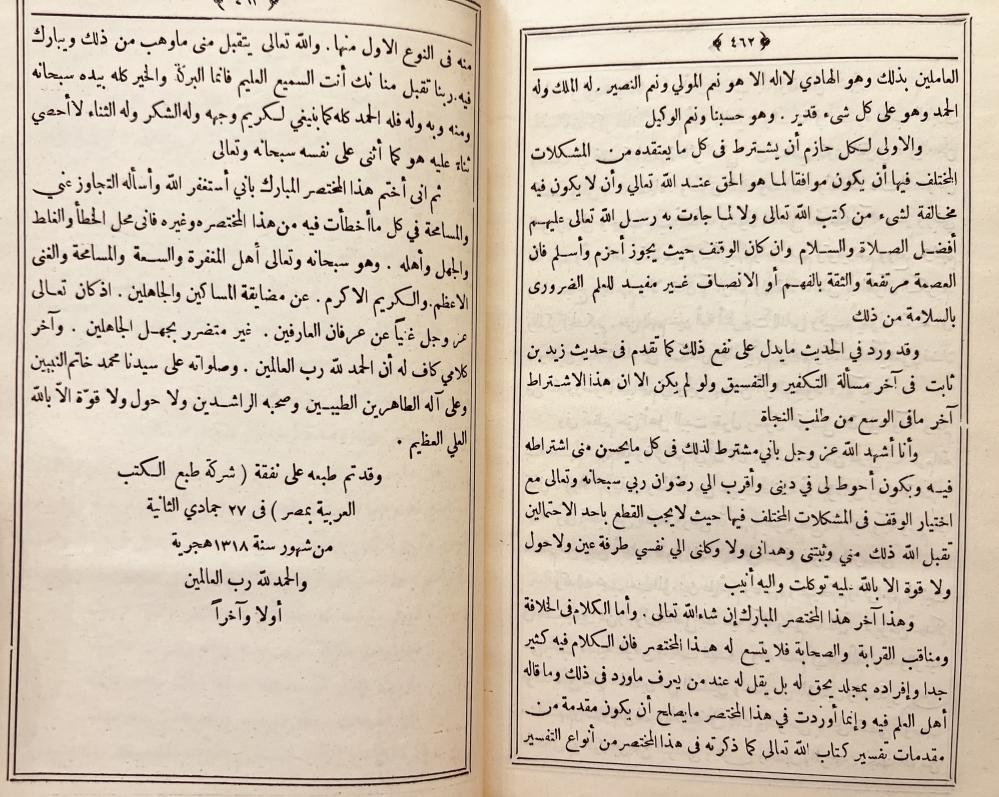 ﴿ ٤٦٢ ﴾
العاملين بذلك وهو الهادي لااله الا هو نعم المولي ونعم النصير . له الملك وله
الحمد وهو على كل شىء قدير . وهو حسبنا ونعم الوكيل
والاولى لكل حازم أن يشترط فى كل ما يعتقده من المشكلات
المختلف فيها أن يكون موافقا لما هو الحق عند الله تعالي وأن لا يكون فيه
مخالفة لشىء من كتب الله تعالى ولا لما جاءت به رسل الله تعالى عليهم
أفضل الصلاة والسلام وان كان الوقف حيث يجوز أحزم وأسلم فان
العصمة مرتفعة والثقة بالفهم أو الانصاف غير مفيد للعلم الضرورى
بالسلامة من ذلك
وقد ورد في الحديث مايدل على نفع ذلك كما تقدم فى حديث زيد بن
ثابت فى آخر مسألة التكفير والتفسيق ولو لم يكن الا ان هذا الاشتراط
آخر مافى الوسع من طلب النجاة
وأنا أشهد الله عز وجل باني مشترط لذلك فى كل مايحسن منى اشتراطه
فيه ويكون أحوط لى فى دينى وأقرب الي رضوان ربي سبحانه وتعالى مع
اختيار الوقف فى المشكلات المختلف فيها حيث لايجب القطع باحد الاحتمالين
تقبل الله ذلك مني وثبتنى وهدانى ولا وكانى الي نفسي طرفة عين ولاحول
ولا قوة الا بالله عليه توكلت واليه أنيب
وهذا آخر هذا المختصر المبارك إن شاءالله تعالى . وأما الكلام فى الخلافة
ومناقب القرابة والصحابة فلا يتسع له هذا المختصر فان الكلام فيه كثير
جدا وإفراده بمجلد يحق له بل يقل له عند من يعرف ماورد فى ذلك وماقاله
أهل العلم فيه وإنما أوردت في هذا المختصر مايصلح أن يكون مقدمة من
مقدمات تفسير كتاب الله تعالى كما ذكرته فى هذا المختصر من أنواع التفسير
منه فى النوع الاول منها . والله تعالى يتقبل منى ماوهب من ذلك ويبارك
فيه. ربنا تقبل منا نك أنت السميع العليم فانما البركة والخير كله بيده سبحانه
ومنه وبه وله فله الحمد كله كما ينبغي لكريم وجهه وله الشكر وله الثناء لاأحصي
ثناءً عليه هو كما أثنى على نفسه سبحانه وتعالى
ثم انى أختم هذا المختصر المبارك باني أستغفر الله وأسأله التجاوز عني
والمسامحة في كل ماأخطأت فيه من هذا المختصر وغيره فانى محل الخطأ والغلط
والجهل وأهله . وهو سبحانه وتعالى أهل المغفرة والسعة والمسامحة والغنى
الاعظم. والكريم الاكرم . عن مضايقة المساكين والجاهلين . اذ كان تعالى
عز وجل غنياً عن عرفان العارفين . غير متضرر بجهل الجاهلين . وآخر
كلامي كاف له أن الحمد لله رب العالمين . وصلواته على سيدنا محمد خاتم النبيين
وعلى آله الطاهرين الطيبين وصحبه الراشدين ولا حول ولا قوّة الاّ بالله
العلي العظيم .
وقد تم طبعه على نفقة ( شركة طبع الكتب
العربية بمصر ) فى ٢٧ جمادي الثانية
من شهور سنة ١٣١٨ هجرية
والحمد لله رب العالمين
أولا وآخراً